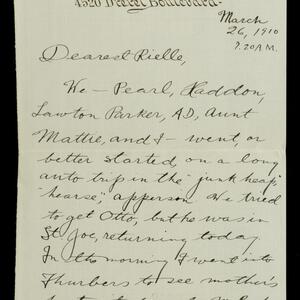 4520 Drexel Boulevard.
March
26, 1910
7.20 A.M.
Dearest Rielle,
We — Pearl, Haddon,
Lawton Parker, A.D., Aunt
Mattie, and I — went, or
better started, on a long
auto trip in the "junk heap,"
"hearse," apperson. We tried
to get Otto, but he was in
St. Joe, returning today.
In the morning I went into
Thurbers to see mother's